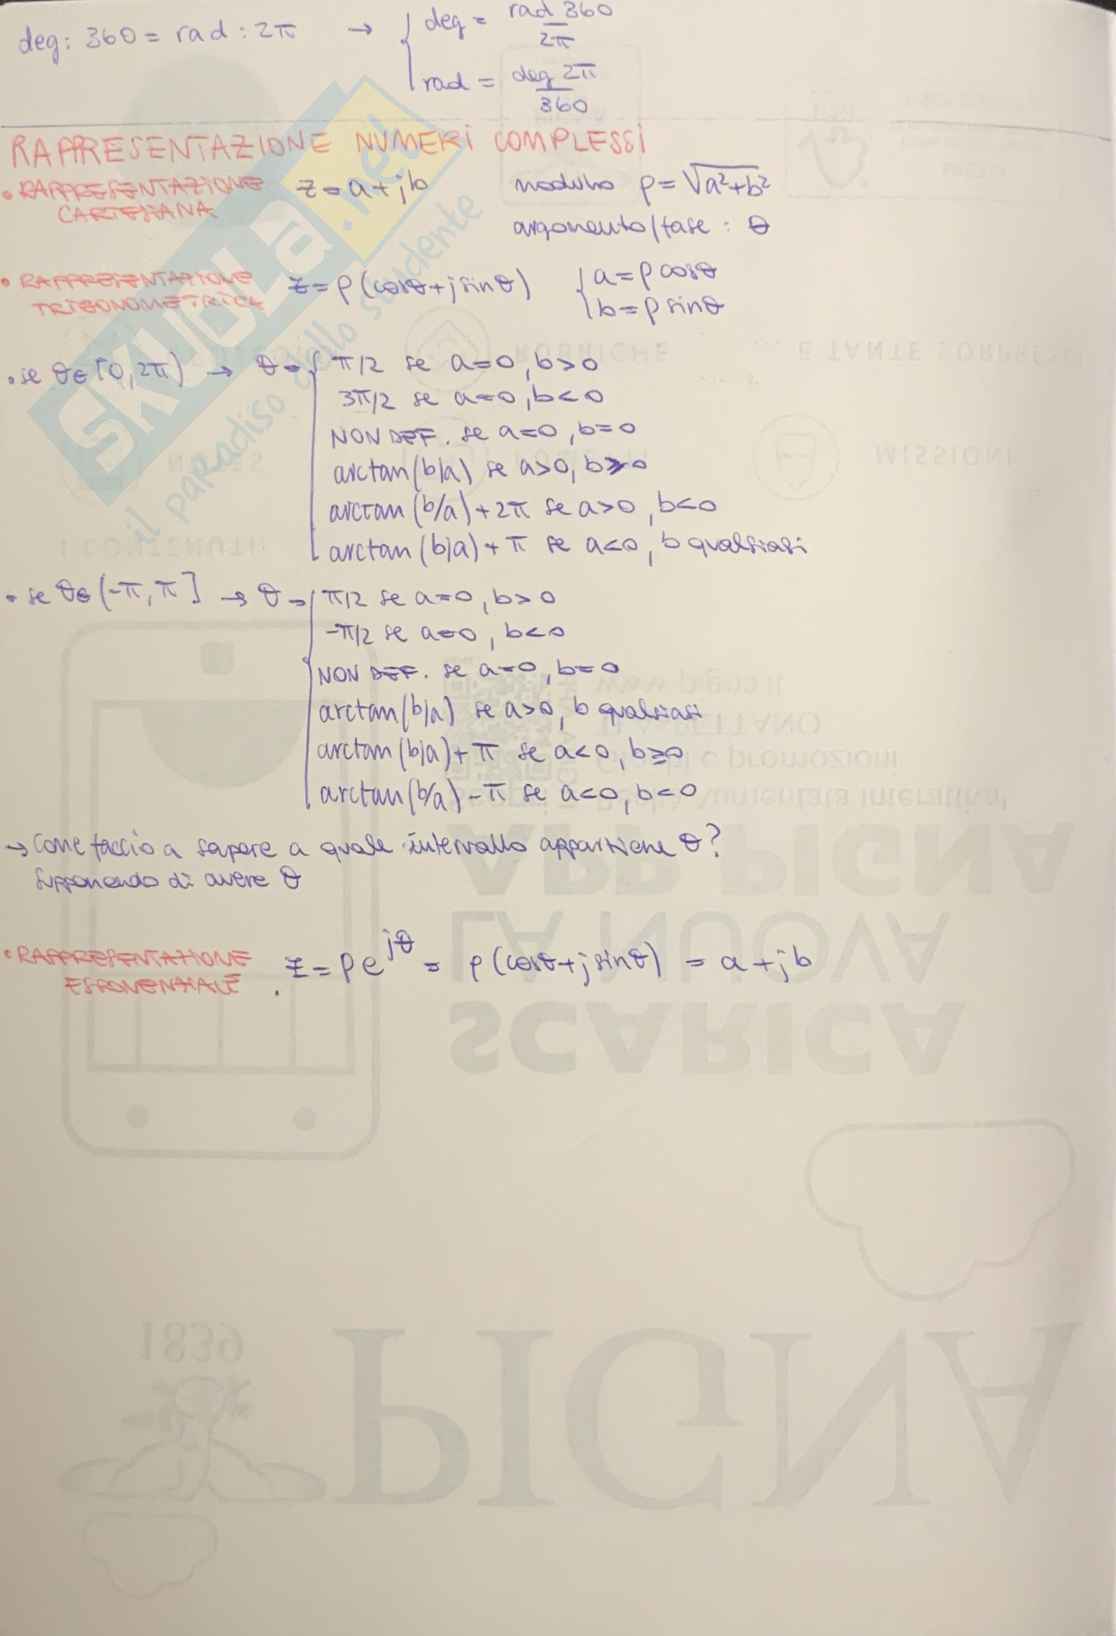 deg: 360 = rad : 2π → { deg = rad 360 / 2π
rad = deg 2π / 360
RAPPRESENTAZIONE NUMERI COMPLESSI
• RAPPRESENTAZIONE CARTESIANA z = a+jb modulo ρ = √a²+b²
argomento/fase : θ
• RAPPRESENTAZIONE TRIGONOMETRICA z = ρ(cosθ+jsinθ) { a = ρcosθ
b = ρsinθ
• se θ∈[0,2π) → θ = { π/2 se a=0, b>0
3π/2 se a=0, b<0
NON DEF. se a=0, b=0
arctan(b/a) se a>0, b≥0
arctan(b/a)+2π se a>0, b<0
arctan(b/a)+π se a<0, b qualsiasi
• se θ∈(-π,π] → θ = { π/2 se a=0, b>0
-π/2 se a=0, b<0
NON DEF. se a=0, b=0
arctan(b/a) se a>0, b qualsiasi
arctan(b/a)+π se a<0, b≥0
arctan(b/a)-π se a<0, b<0
→ Come faccio a sapere a quale intervallo appartiene θ?
Supponendo di avere θ
• RAPPRESENTAZIONE ESPONENZIALE z = ρe^jθ = ρ(cosθ+jsinθ) = a+jb
SKUOLA.net
il paradiso dello studente
ROBRICHE
... E TANTE SORPRESE
MISSIONI
I CONTENUTI
www.pigna.it
APP PIGNA
LA NUOVA
SCARICA
1839
PIGNA